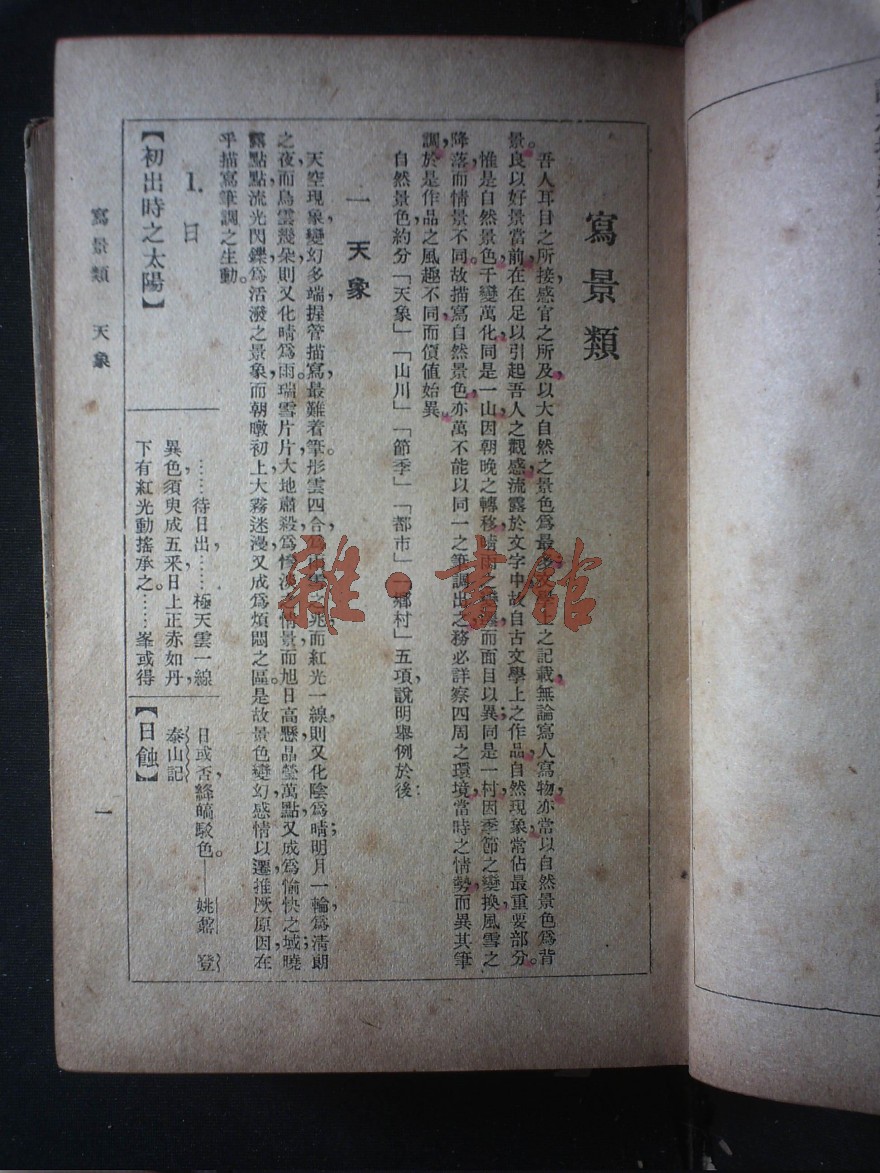 寫景類
吾人耳目之所接，感官之所及，以大自然之景色爲最多。之記載，無論寫人寫物，亦常以自然景色爲背
景。良以好景當前，在在足以引起吾人之觀感，流露於文字中。故自古文學上之作品，自然現象常佔最重要部分。
惟是自然景色，千變萬化，同是一山，因朝晚之轉移，晴雨之而面目以異；同是一村，因季節之變換，風雪之
降落，而情景不同。故描寫自然景色，亦萬不能以同一之筆調出之，務必詳察四周之環境，當時之情勢，而異其筆
調，於是作品之風趣不同，而價値始異。
自然景色，約分「天象」「山川」「節季」「都市」「鄉村」五項，說明舉例於後：
一 天象
天空現象，變幻多端，握管描寫，最難着筆。彤雲四合，爲雨雪之兆，而紅光一線，則又化陰爲晴；明月一輪，爲清朗
之夜，而烏雲幾朵，則又化晴爲雨。瑞雪片片，大地肅殺，爲慘淡之情景，而旭日高懸，晶瑩萬點，又成爲愉快之域；曉
露點點，流光閃鑠，爲活潑之景象，而朝暾初上，大霧迷漫，又成爲煩悶之區。是故景色變幻，感情以遷，推厥原因，在
乎描寫筆調之生動。
1. 日
【初出時之太陽】
……待日出，……極天雲一線
異色，須臾成五釆。日上，正赤如丹，
下有紅光動搖承之。……峯或得
日，或否，絳皜駁色。——姚鼐 登
泰山記
【日蝕】
寫景類 天象
一
雜·書館